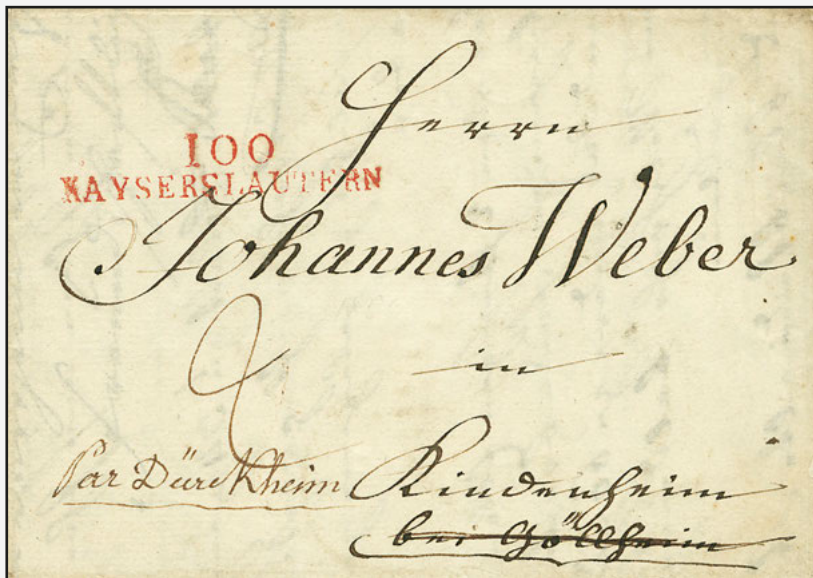 100
KAYSERSLAUTERN
Herrn
Johannes Weber
in
Par Dürckheim Kindenheim
bei Göllheim